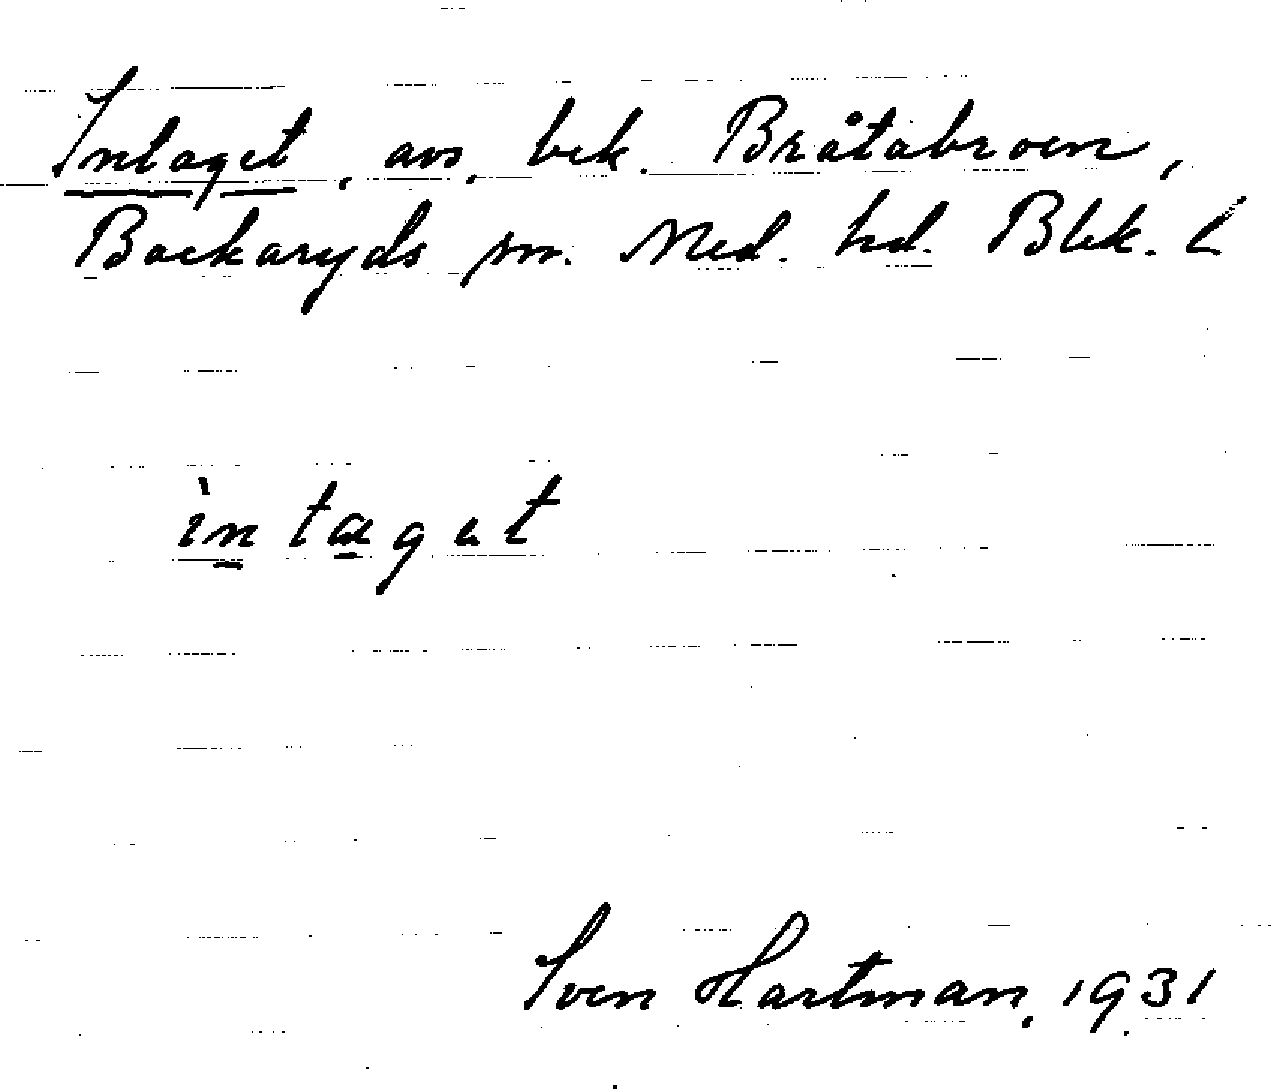 Intaget, avs. bek. Bråtabroen,
Backaryds sn. Med. hd. Blek. l
ìntæget
Sven Hartman, 1931